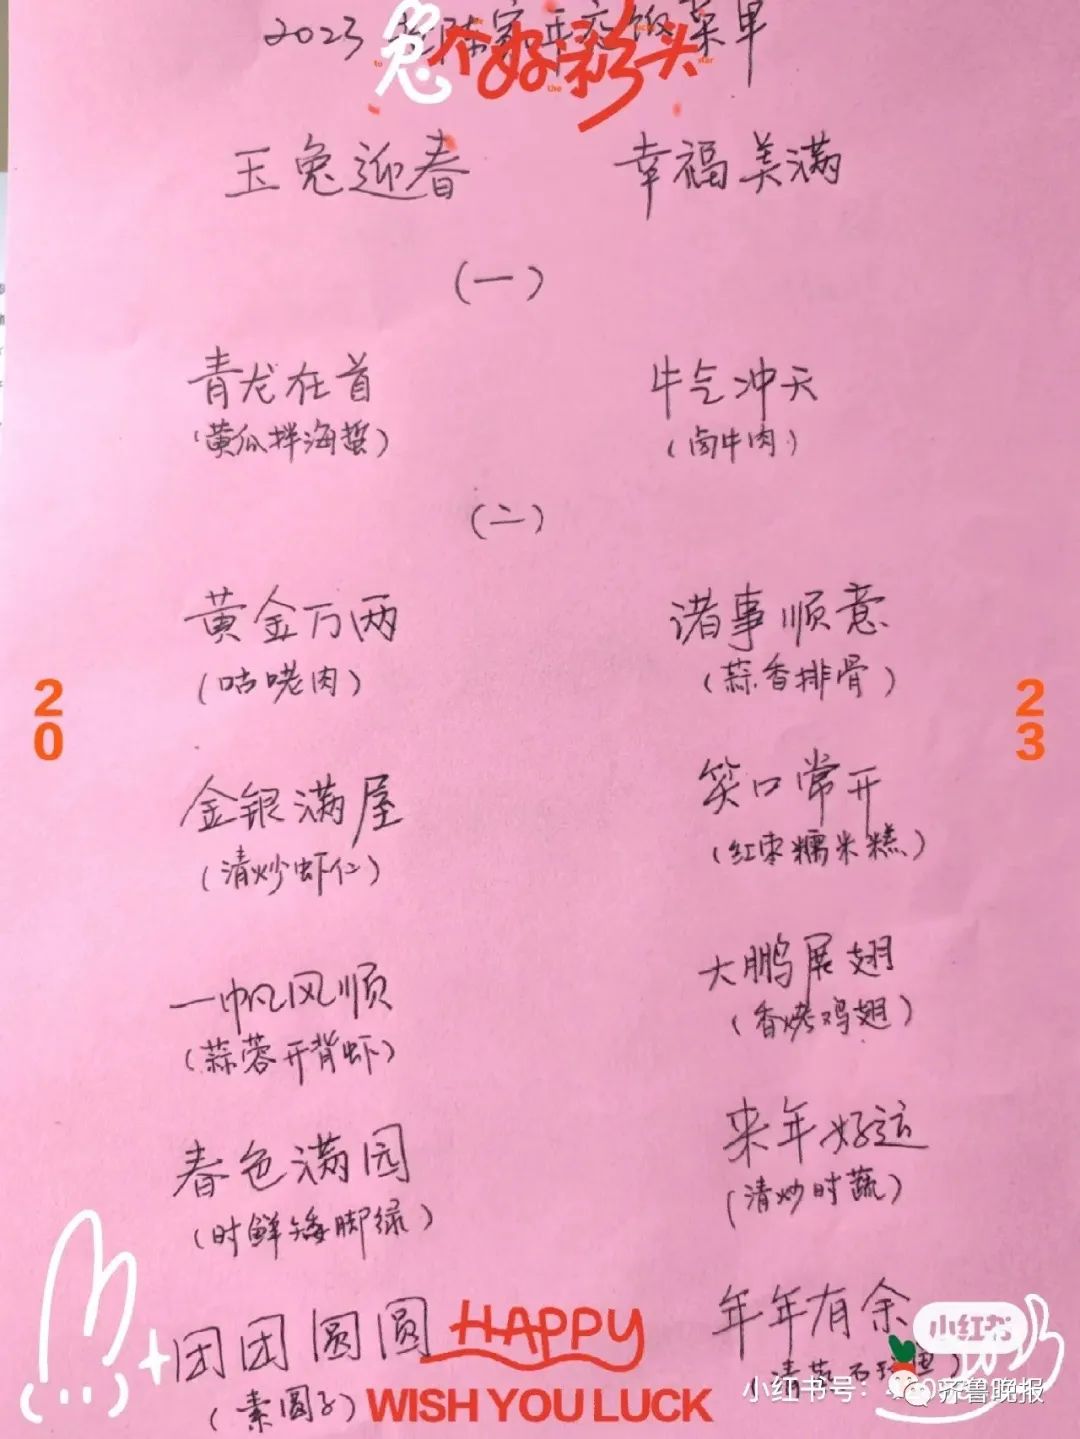 2023 陈家年夜饭菜单
兔个好彩头
玉兔迎春 幸福美满
(一)
青龙在首 牛气冲天
(黄瓜拌海蜇) (卤牛肉)
(二)
黄金万两 诸事顺意
(咕咾肉) (蒜香排骨)
20
23
金银满屋 笑口常开
(清炒虾仁) (红枣糯米糕)
一帆风顺 大鹏展翅
(蒜蓉开背虾) (香烤鸡翅)
春色满园 来年好运
(时鲜矮脚绿) (清炒时蔬)
团团圆圆 年年有余
(素圆子) (清蒸
HAPPY
WISH YOU LUCK
小红书
小红书号:
齐鲁晚报